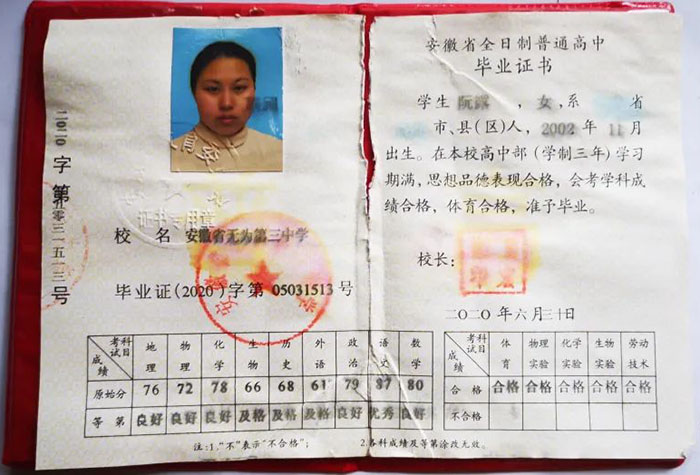 二〇二〇字第九零三一五一三号
证书专用章
校 名 安徽省无为第三中学
毕业证(2020)字第 05031513 号
考试科目 成绩 地理 物理 化学 生物 历史 外语 政治 语文 数学
原始分 76 72 78 66 68 61 79 87 80
等 第 良好 良好 良好 及格 及格 及格 良好 优秀 良好
注:1."不"表示"不合格"; 2.各科成绩及等第涂改无效。
安徽省全日制普通高中
毕业证书
学生 阮 , 女, 系 省
市、县(区)人, 2002 年 11 月
出生。在本校高中部(学制三年)学习
期满,思想品德表现合格,会考学科成
绩合格,体育合格,准予毕业。
校长:
二〇二〇年六月三十日
考试科目 成绩 体育 物理实验 化学实验 生物实验 劳动技术
合 格 合格 合格 合格 合格 合格
不合格